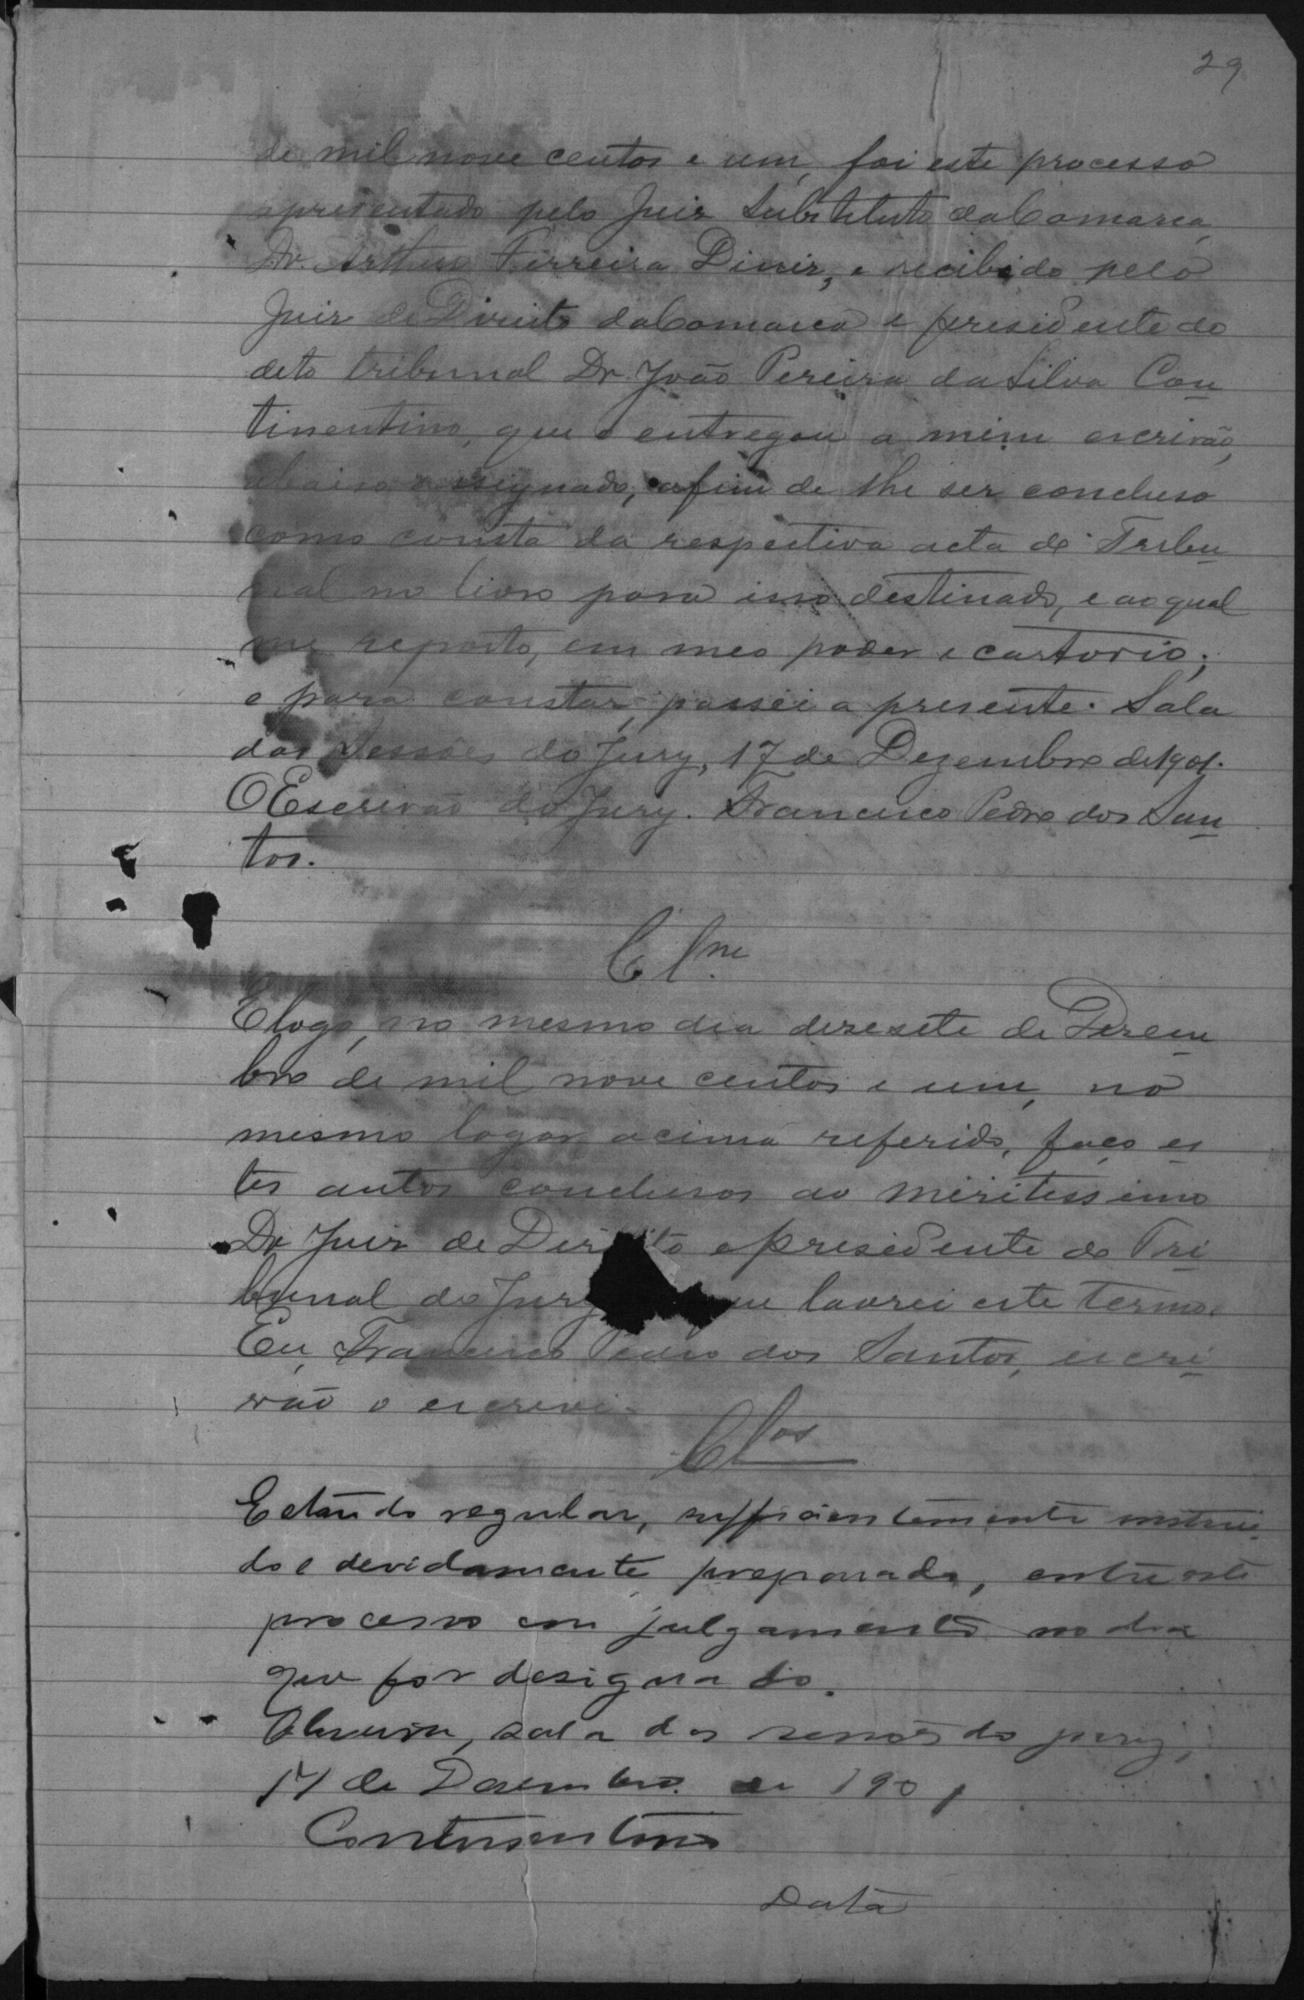 29
de mil nove centos e um, foi este processo
apresentado pelo Juiz Substituto da Comarca,
Dr. Arthur Ferreira Diniz, e recebido pelo
Juiz de Direito da Comarca e presidente do
deto tribunal Dr. João Pereira da Silva Con
tinentino, que o entregou a mim escrivão,
abaixo assignado, afim de lhe ser concluso
como consta da respectiva acta do Tribu
nal no livro para isso destinado, e ao qual
me reporto, em meo poder e cartorio;
e para constar, passei a presente. Sala
das Sessões do Jury, 17 de Dezembro de 1901.
O Escrivão do Jury. Francisco Pedro dos San
tos.
Cl.ne
E logo, no mesmo dia desesete de Dezem
bro de mil nove centos e um, no
mesmo logar acima referido, faço es
tes autos conclusos ao meritissimo
Dr. Juiz de Direito e presidente do Tri
bunal do Jury que lavrei este termo.
Eu, Francisco Pedro dos Santos, escri
vão o escrevi.
Clos
Estando regular, sufficientemente instrui
do e devidamente preparado, entre este
processo em julgamento no dia
que for designado.
sala das sessões do jury,
17 de Dezembro de 1901
Continentino
Data